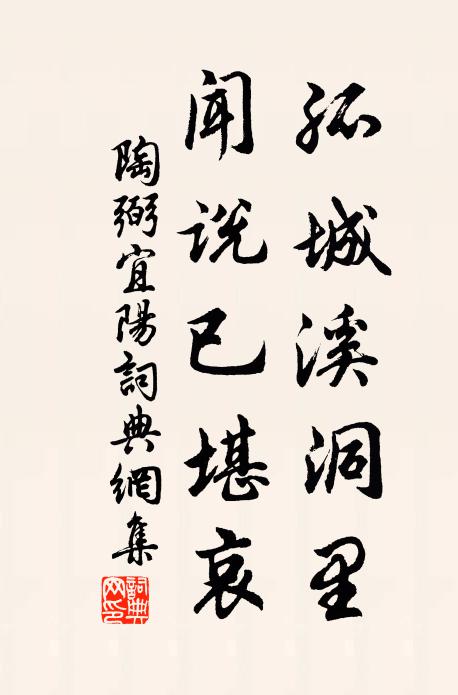 孤城溪洞里
闻说已堪哀
陶弼宜陽詞典網集
詞典網印